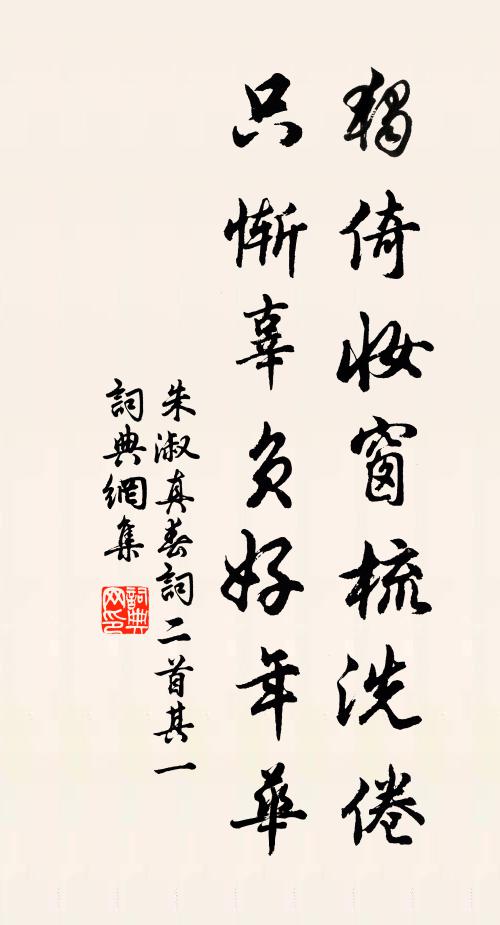 獨倚妝窗梳洗倦
只慚辜負好年華
朱淑真春詞二首其一
詞典網集
詞典网印